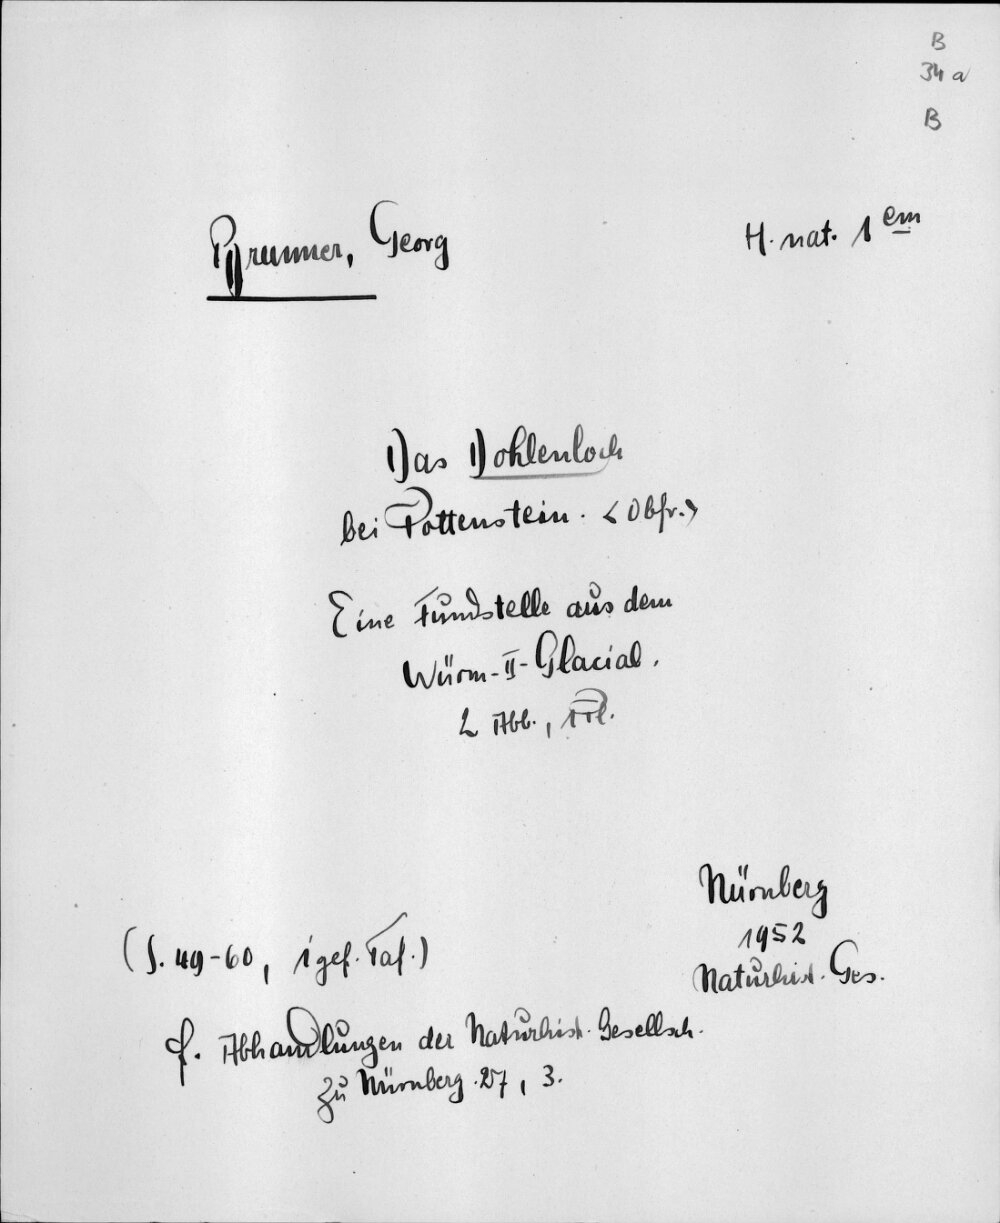 B
34 a
B
Brunner, Georg
H. nat. 1 em
Das Dohlenloch
bei Pottenstein. <Obfr.>
Eine Fundstelle aus dem
Würm-II-Glacial.
2 Abb., 1
Nürnberg
1952
Naturhist. Ges.
(S. 49-60, 1 gef. Taf.)
f. Abhandlungen der Naturhist. Gesellsch.
zu Nürnberg. 27, 3.